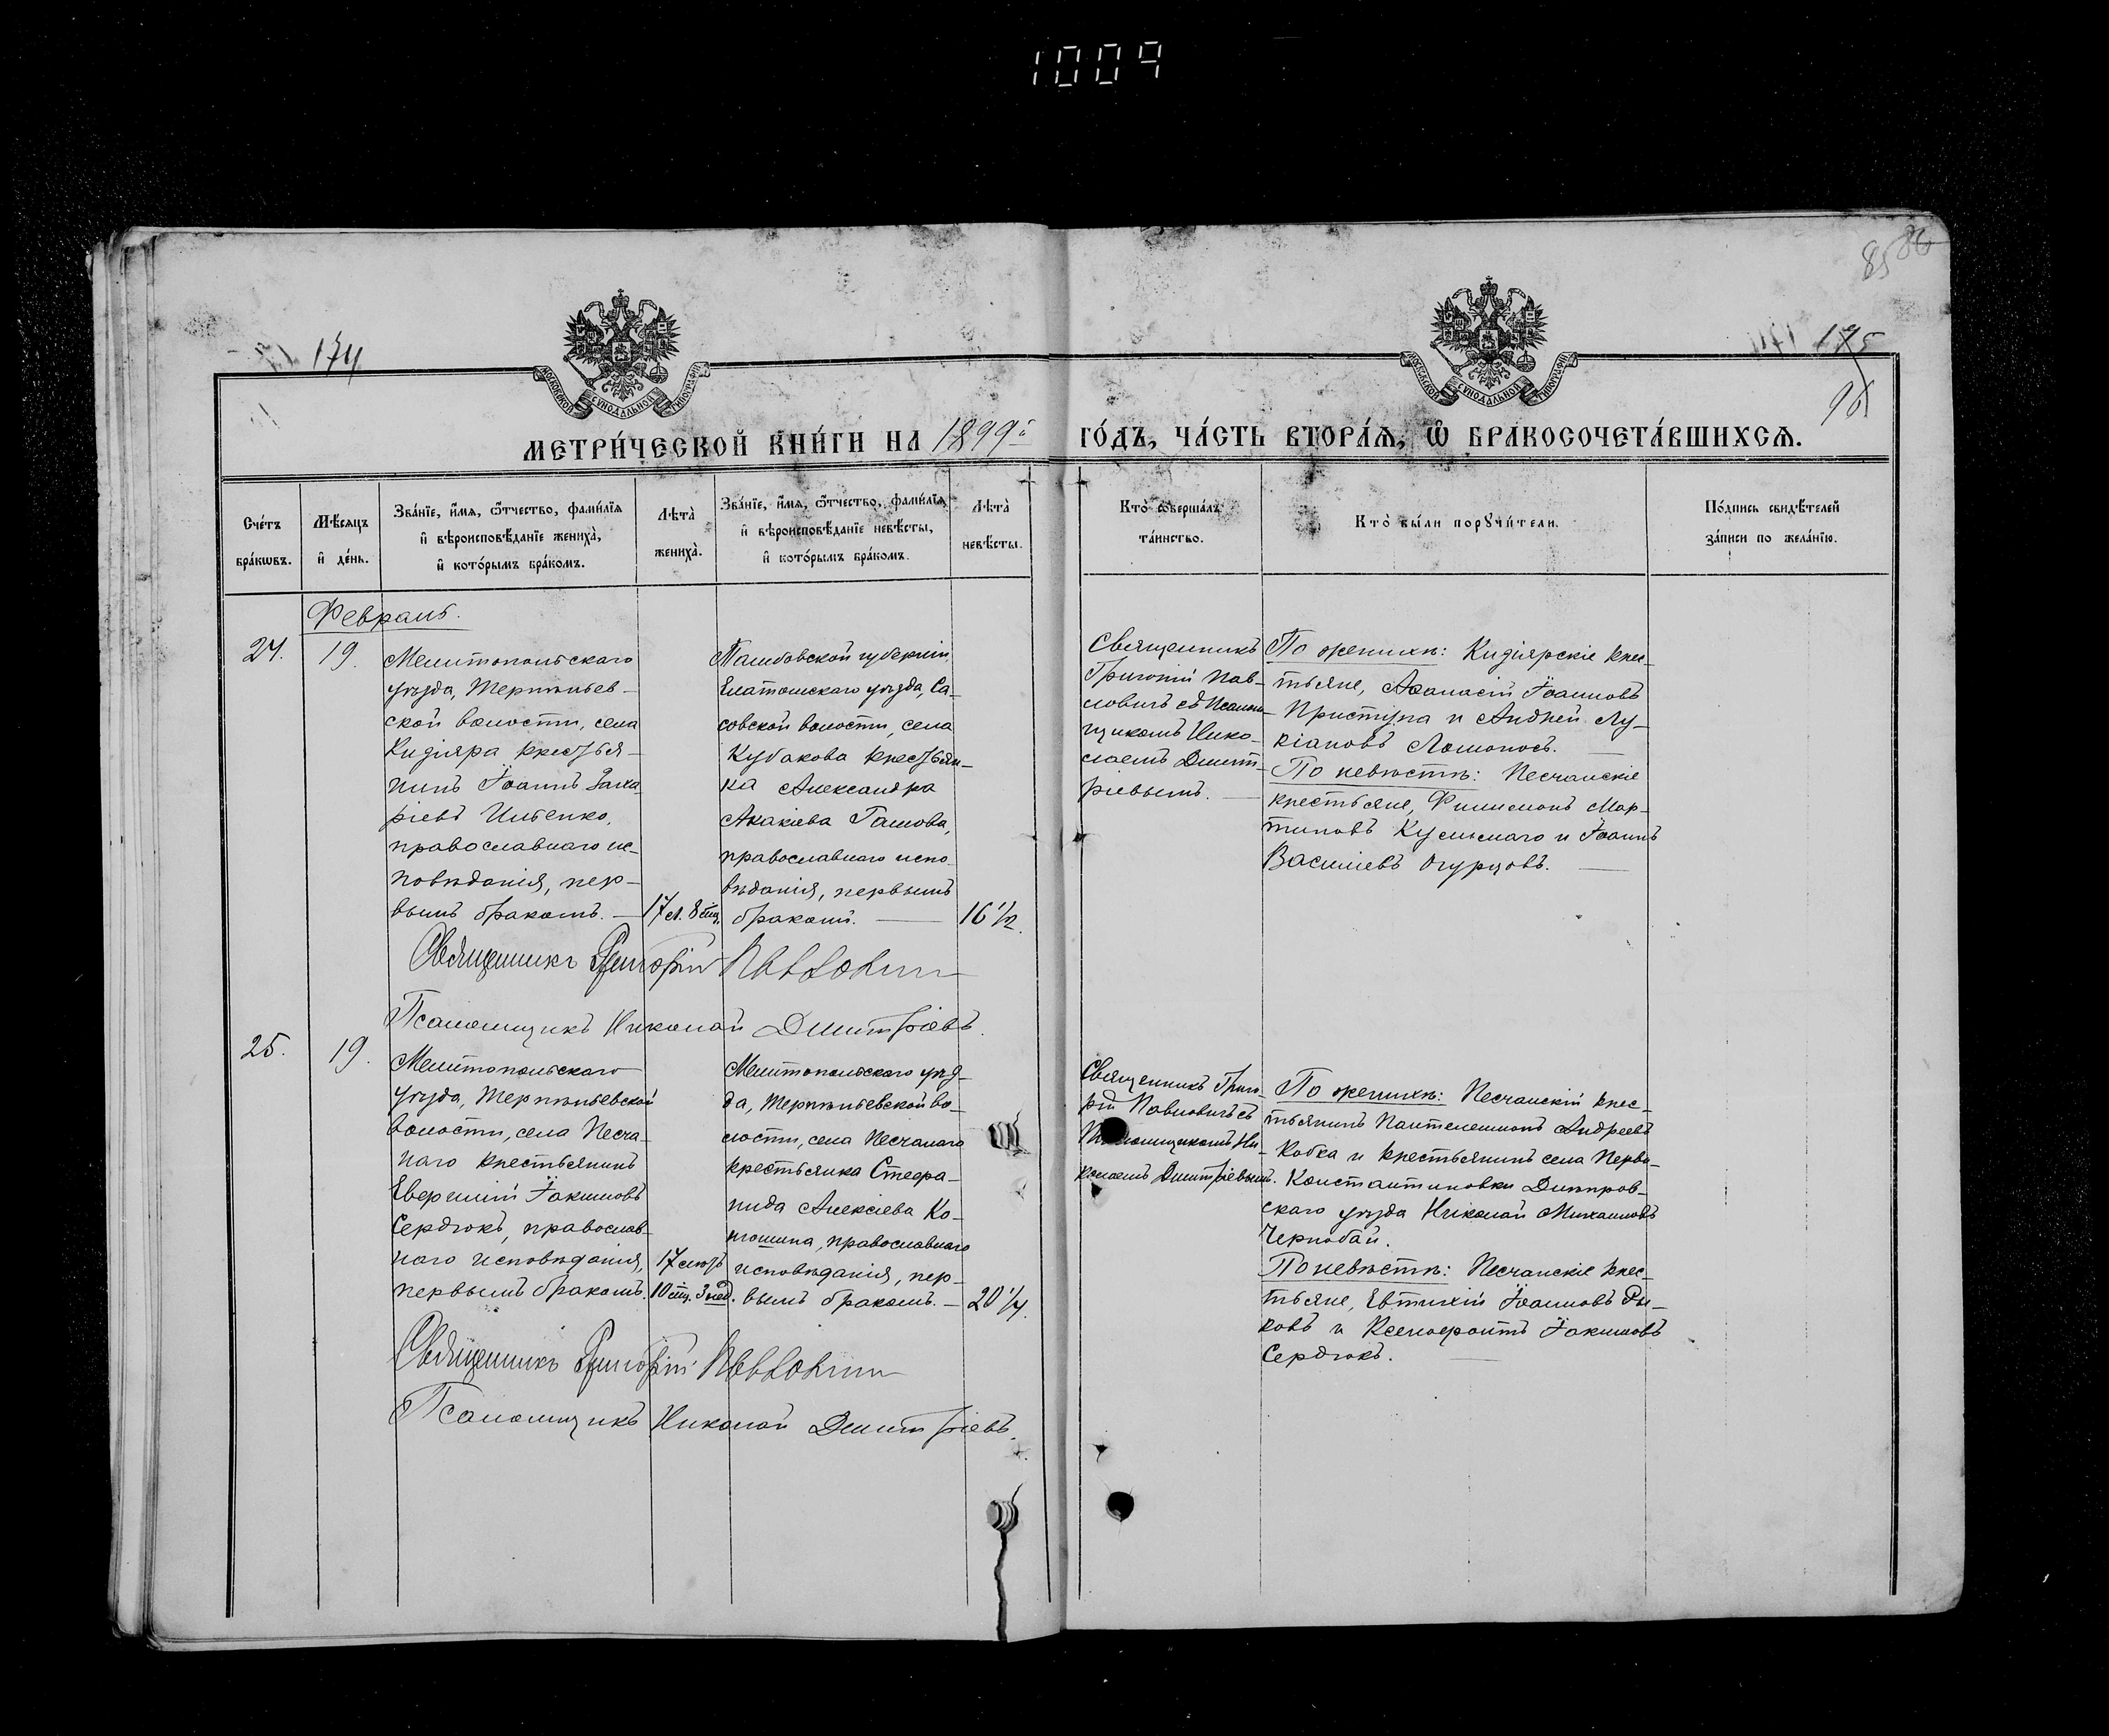 1009
85 86
174
175
96
МОСКОВСКОЙ СУНОДАЛЬНОЙ ТИПОГРАФІИ
МОСКОВСКОЙ СУНОДАЛЬНОЙ ТИПОГРАФІИ
МЕТРИ́ЧЕСКОЙ КНИ́ГИ НА 1899й ГО́ДЪ, ЧА́СТЬ ВТОРА́Ѧ, Ѿ БРАКОСОЧЕТА́ВШИХСѦ.
Сче́тъ
бра́кѡвъ.
Мѣ́сѧцъ
и҆ де́нь.
Зва́нїе, и҆́мѧ, ѻ҆́тчество, фами́лїѧ
и҆ вѣроисповѣ́данїе жениха̀,
и҆ кото́рымъ бра́комъ.
Лѣта̀
жениха̀.
Зва́нїе, и҆́мѧ, ѻ҆́тчество, фами́лїѧ
и҆ вѣроисповѣ́данїе невѣ́сты,
и҆ кото́рымъ бра́комъ.
Лѣта̀
невѣ́сты.
Кто̀ соверша́лъ
та́инство.
Кто̀ бы́ли порꙋчи́тели.
По́дпись свидѣ́телей
за́писи по жела́нїю.
Февраль.
24.
19.
Мелитопольскаго
уѣзда, Терпѣньев-
ской волости, села
Кизіяра крестья-
нинъ Іоаннъ Заха-
ріевъ Ильенко,
православнаго ис-
повѣданія, пер-
вымъ бракомъ.
17 л. 8 мѣц.
Тамбовской губерніи,
Елатомскаго уѣзда, Са-
совской волости, села
Кубакова крестьян-
ка Александра
Акакіева Гашова,
православнаго испо-
вѣданія, первымъ
бракомъ.
16 1/2.
Священникъ
Григорій Пав-
ловичъ съ Псалом-
щикомъ Нико-
лаемъ Димит-
ріевымъ.
По женихѣ: Кизіярскіе крес-
тьяне, Аѳанасій Іоанновъ
Приступа и Андрей Лу-
кіановъ Ломоносъ.
По невѣстѣ: Песчанскіе
крестьяне, Филимонъ Мар-
тиновъ и Іоаннъ
Василіевъ Огурцовъ.
Священникъ Григорій Павловичъ
Псаломщикъ Николай Димитріевъ.
25.
19.
Мелитопольскаго
уѣзда, Терпѣньевской
волости, села Песча-
наго крестьянинъ
Евгеній Іакимовъ
Сердюкъ, православ-
наго исповѣданія,
первымъ бракомъ.
17 лѣтъ
10 мѣц. 3 нед.
Мелитопольскаго уѣз-
да, Терпѣньевской во-
лости, села Песчанаго
крестьянка Стефа-
нида Алексіева Ко-
нюшина, православнаго
исповѣданія, пер-
вымъ бракомъ.
20 1/4.
Священникъ Григо-
рій Павловичъ съ
Псаломщикомъ Ни-
колаемъ Димитріевымъ.
По женихѣ: Песчанскій крес-
тьянинъ Пантелеимонъ Андреевъ
Кобка и крестьянинъ села Перво-
Константиновки Днѣпров-
скаго уѣзда Николай Михаиловъ
Чернобай.
По невѣстѣ: Песчанскіе крес-
тьяне, Евтихій Іоанновъ Ры-
ковъ и Ксенофонтъ Іакимовъ
Сердюкъ.
Священникъ Григорій Павловичъ
Псаломщикъ Николай Димитріевъ.